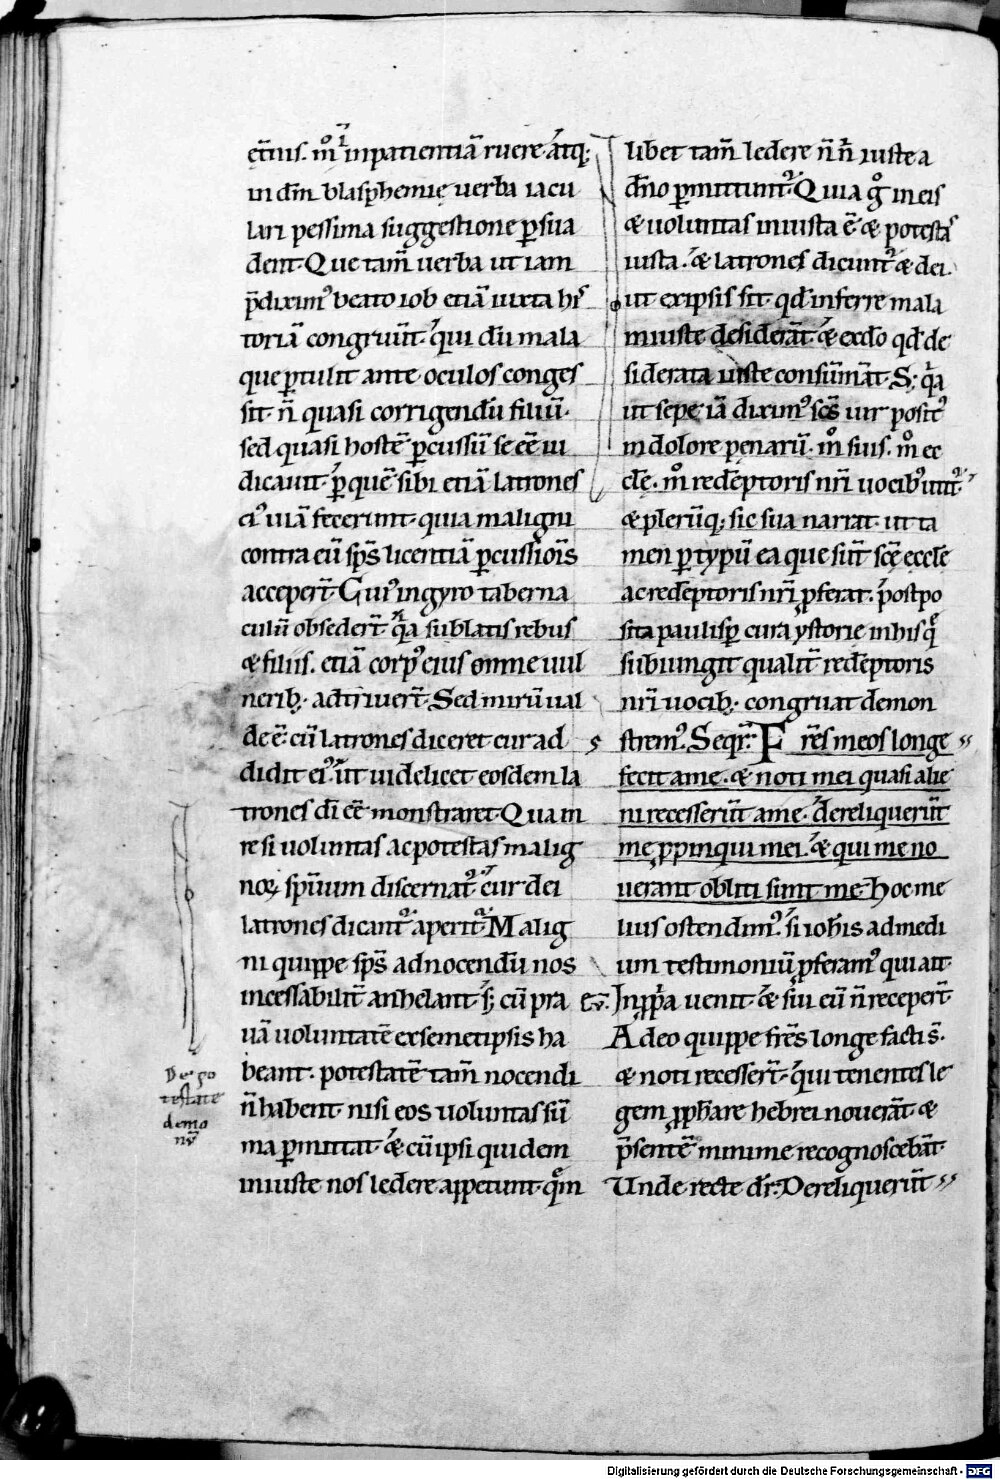 et̄nis. m̊ inpatientiā ruere. atq;
in dm̄ blasphemię uerba iacu
lari pessima suggestione ꝑsua
dent. Que tam̄ uerba ut iam
p̄dixim᷒ beato iob etiā iuxta his
toriā congruūt. qui dū mala
que ꝑtulit ante oculos conges
sit. n̄ quasi corrigendū filiū.
sed quasi hostē ꝑcussū se eē iu
dicauit. ꝑ quē sibi etiā latrones
ei᷒ uiā fecerunt. quia maligni
contra eū sp̄s licentiā ꝑcussiōis
acceper̄t. Qui᷒ in gyro taberna
culū obseder̄t. q̄a sublatis rebus
& filiis. etiā corp᷒ eius omne uul
nerib; adtriuer̄t. Sed mirū ual
de ē. cū latrones diceret cur ad
didit ei᷒. ut uidelicet eosdem la
trones di eē monstraret. Qua in
re si uoluntas ac potestas malig
noꝝ spūum discernat᷒. cur dei
latrones dicant᷒ aperit᷒. Malig
ni quippe sp̄s ad nocendū nos
incessabilit̄ anhelant. s; cū pra
uā uoluntatē ex semetipsis ha
beant. potestatē tam̄ nocendi
n̄ habent. nisi eos uoluntas sū
ma ꝑmittat. & cū ipsi quidem
iniuste nos ledere appetunt. qm̄
De po
testate
demo
nū
libet tam̄ ledere n̄ n̄ iuste a
dn̄o ꝑmittunt᷒. Quia g̊ in eis
& uoluntas iniusta ē. & potestas
iusta. & latrones dicunt᷒ & dei.
ut ex ipsis sit. qd̄ inferre mala
iniuste desiderāt. & ex do qd̄ de
siderata iuste consūmāt. S; q̄a
ut sepe iā dixim᷒ scs̄ uir posit᷒
in dolore penarū. m̊ suis. m̊ ec
clē. m̊ redēptoris nrī uocib᷒ utit᷒.
& plerūq; sic sua narrat. ut ta
men ꝑ typū ea que sūt scę ecclē
ac redēptoris nrī ꝓferat. postpo
sita paulisꝑ cura ystorie in his q̄
subiungit qualit̄ redēptoris
nrī uocib; congruat demon
strem᷒. Seqr̄. Fr̄es meos longe
fecit a me. & noti mei quasi alie
ni recesserūt a me. dereliquerūt
me ꝓpinqui mei. & qui me no
uerant obliti sunt me. Hoc me
lius ostendim᷒. si ioh̄is ad medi
um testimoniū ꝓferam᷒ qui ait.
Ev̄. In ꝓp̄a uenit. & sui eū n̄ receper̄t.
Adeo quippe fr̄es longe facti s̄.
& noti recesser̄t. qui tenentes le
gem ꝓph̄are hebrei nouerāt &
p̄sentē minime recognoscebāt.
Unde recte dr̄. Dereliquerūt
Digitalisierung gefördert durch die Deutsche Forschungsgemeinschaft - DFG